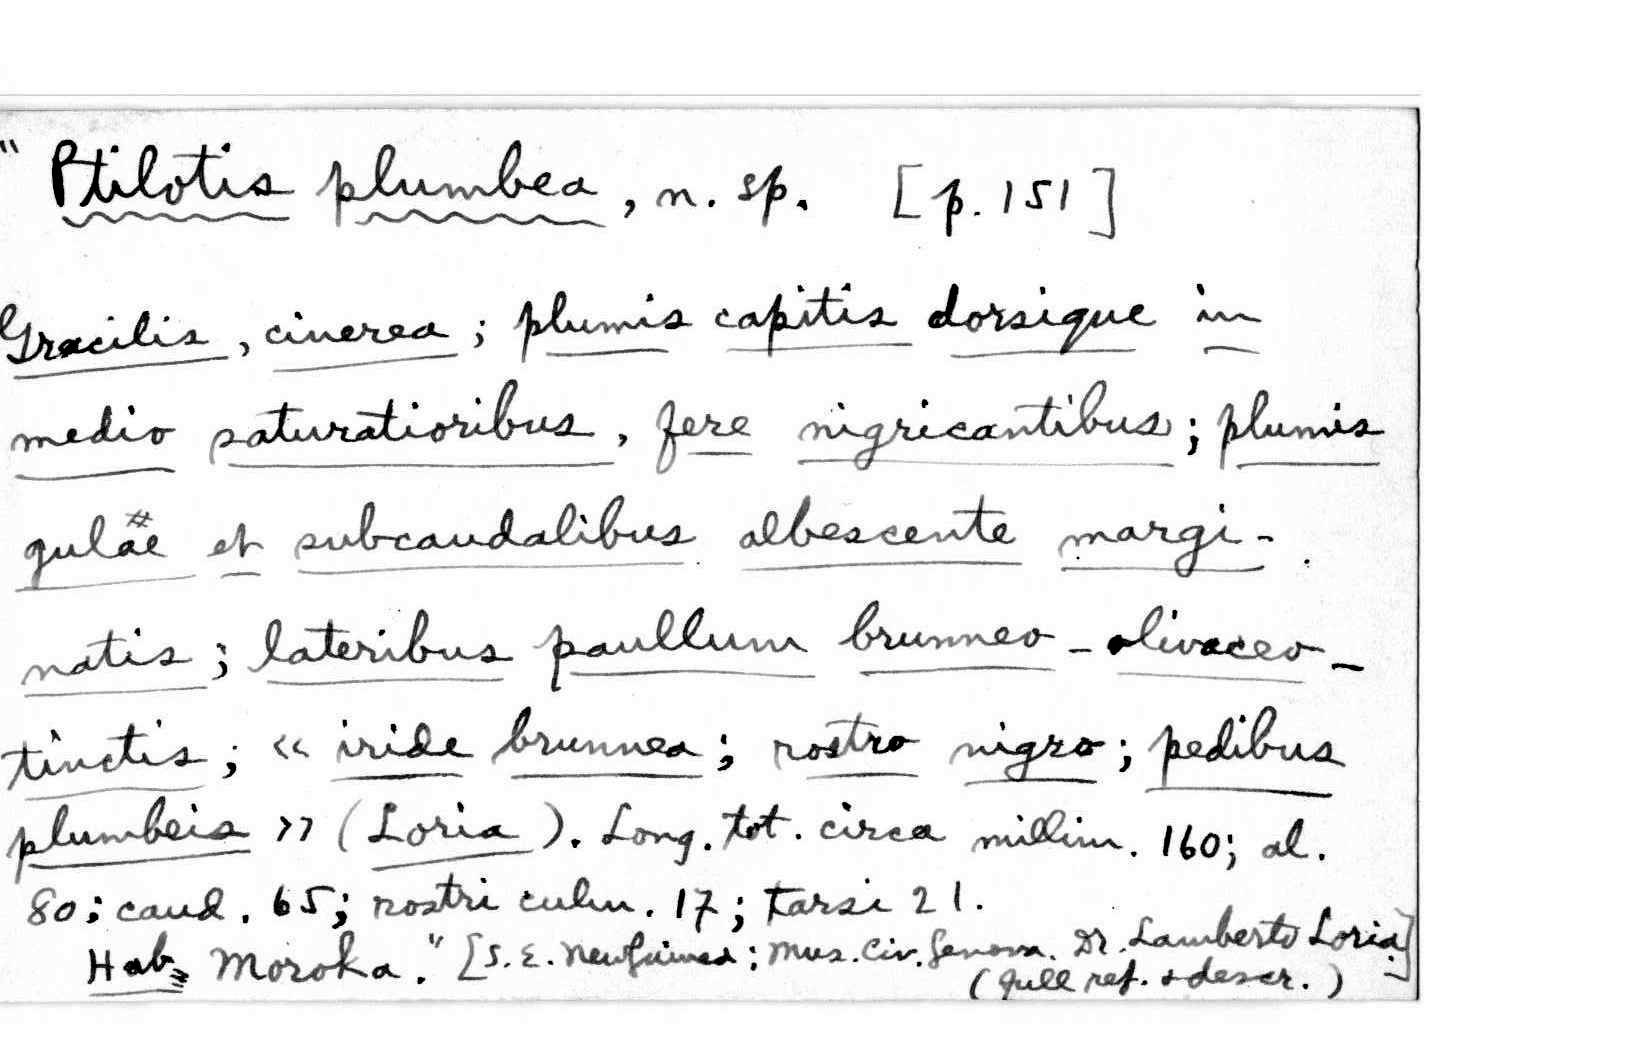 " Ptilotis plumbea, n. sp. [p. 151]
Gracilis, cinerea; plumis capitis dorsique in
medio saturatioribus, fere nigricantibus; plumis
gulae et subcaudalibus albescente margi-
natis; lateribus paullum brunneo-olivaceo-
tinctis; << iride brunnea; rostro nigro; pedibus
plumbeis >> (Loria). Long. tot. circa millim. 160; al.
80; caud. 65; rostri culm. 17; tarsi 21.
Hab. Moroka." [S. E. New Guinea; Mus. Civ. Genova. Dr. Lamberto Loria.]
(full ref. & descr.)